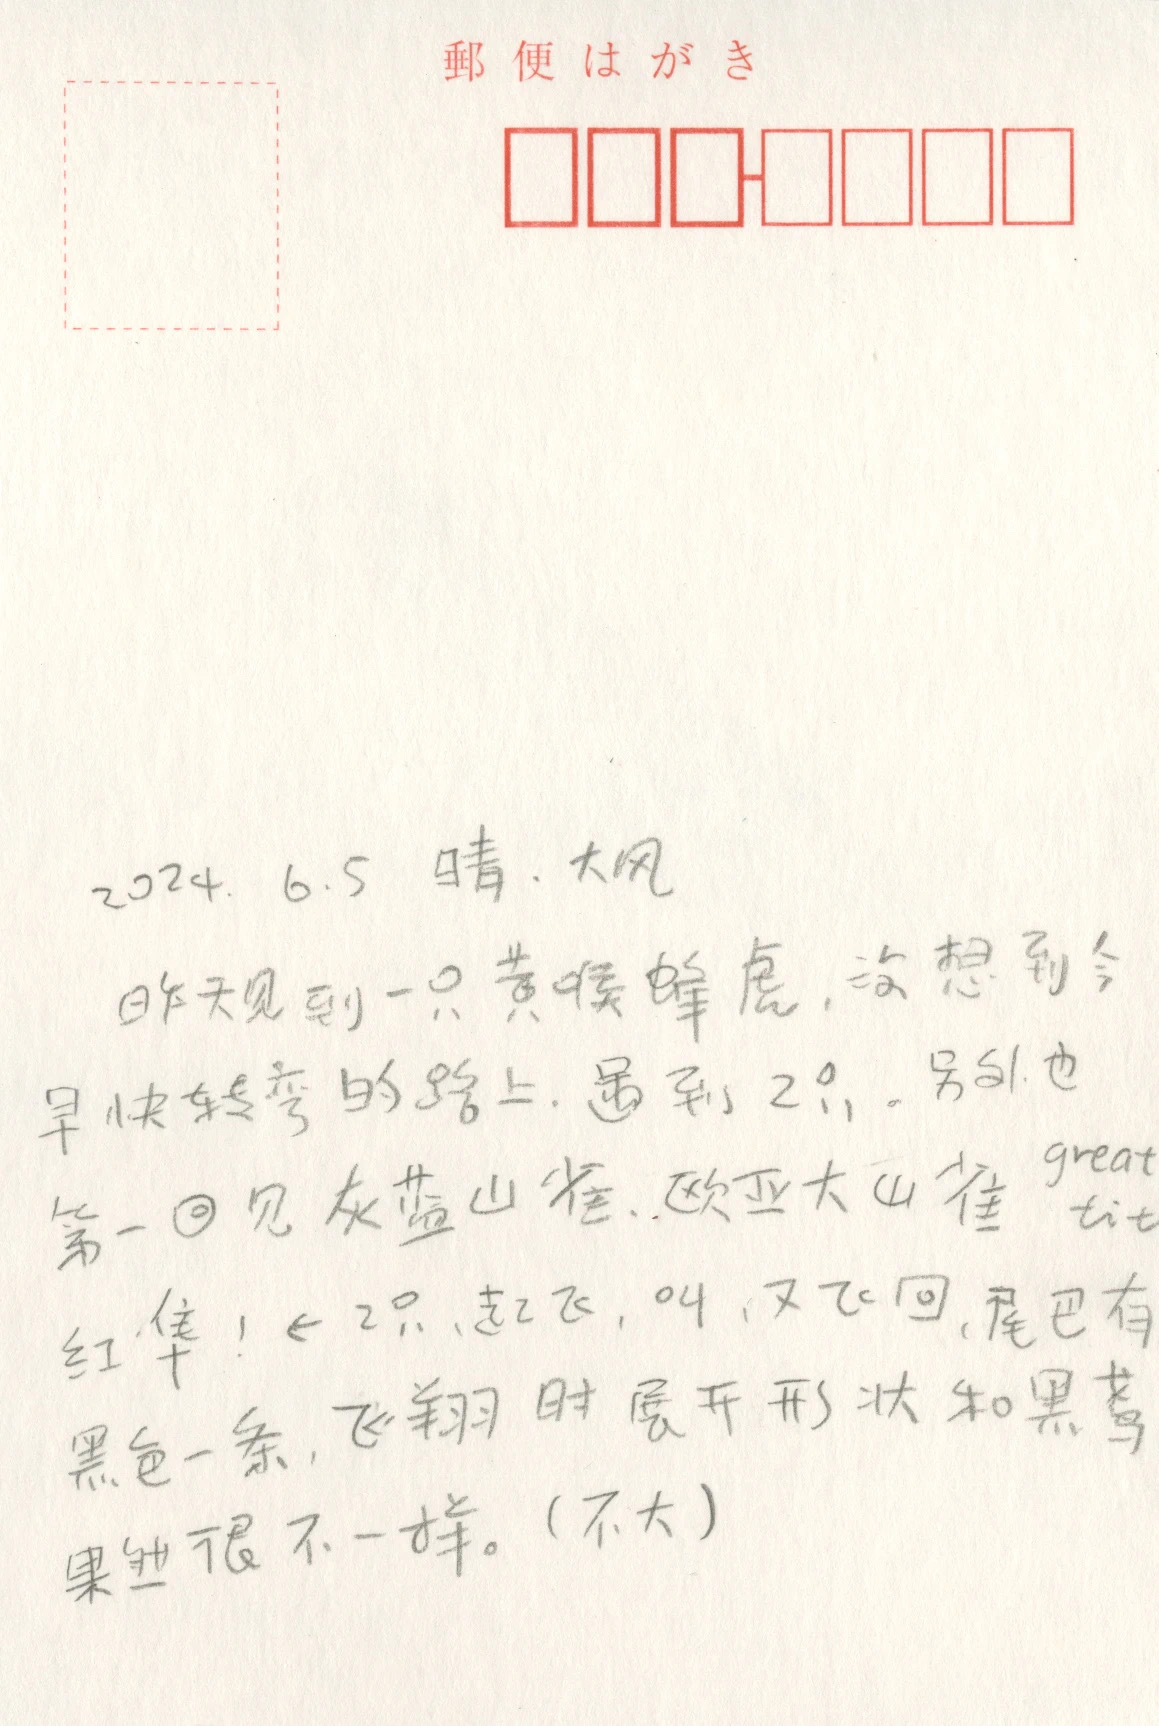 郵便はがき
2024. 6.5 晴. 大风
昨天见到一只黄喉蜂虎,没想到今
早快转弯的路上.遇到2只。另外也
第一回见灰蓝山雀.欧亚大山雀 great tit
红隼!← 2只,起飞,叫,又飞回,尾巴有
黑色一条,飞翔时展开形状和黑鸢
果然很不一样。(不大)